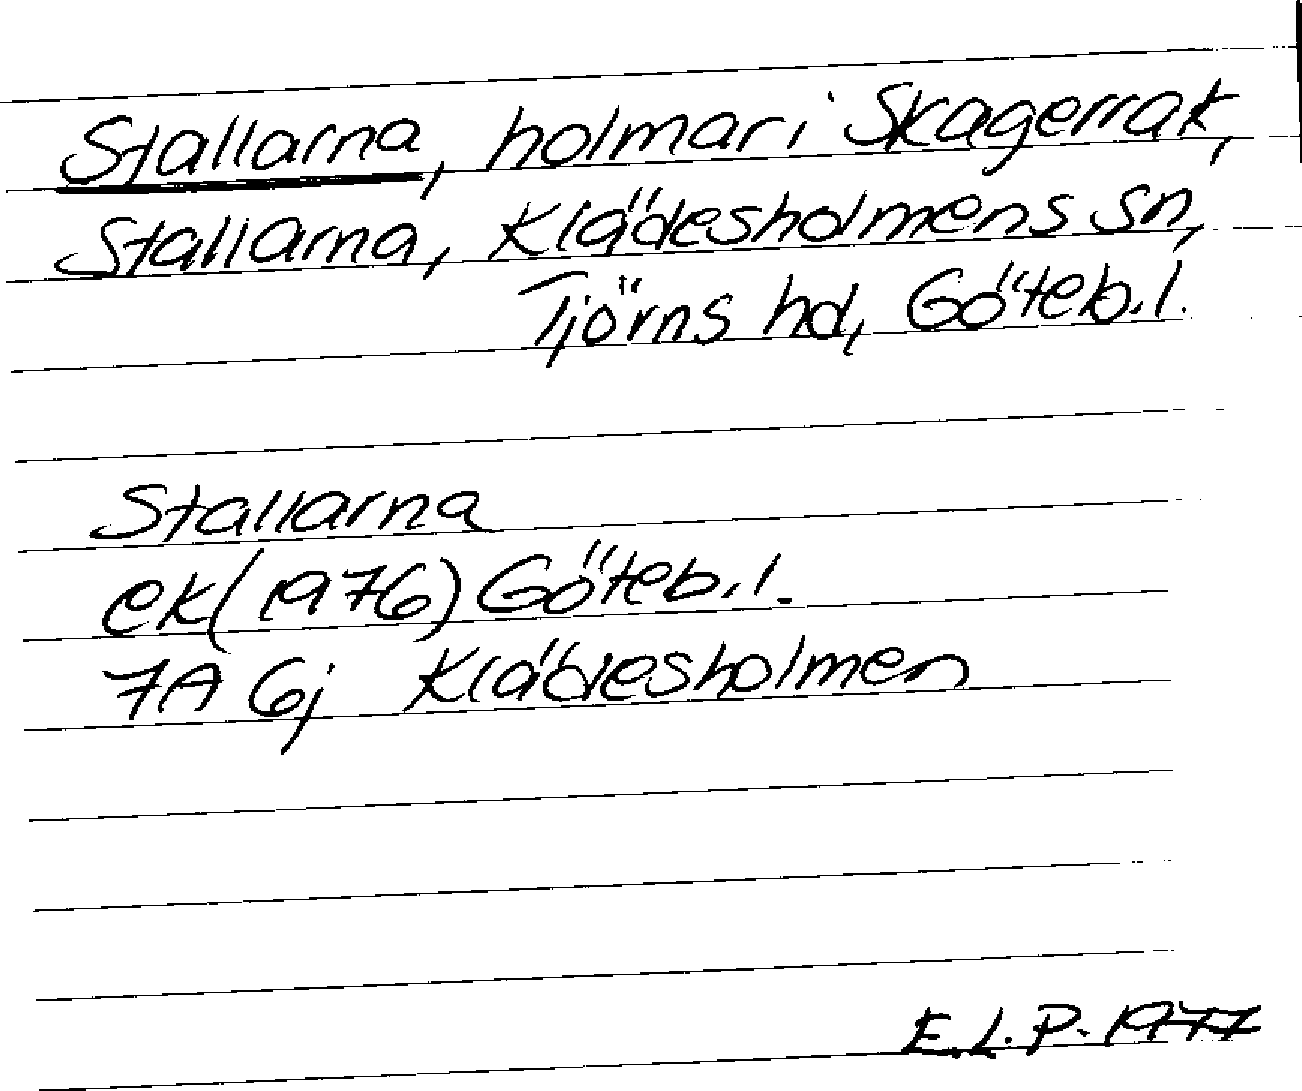 Stallarna, holmar i Skagerrak,
Stallarna, Klädesholmens sn,
Tjörns hd, Göteb. l.
Stallarna
ek (1976) Göteb. l.
7A 6j Klädesholmen
E.L.P. 1977